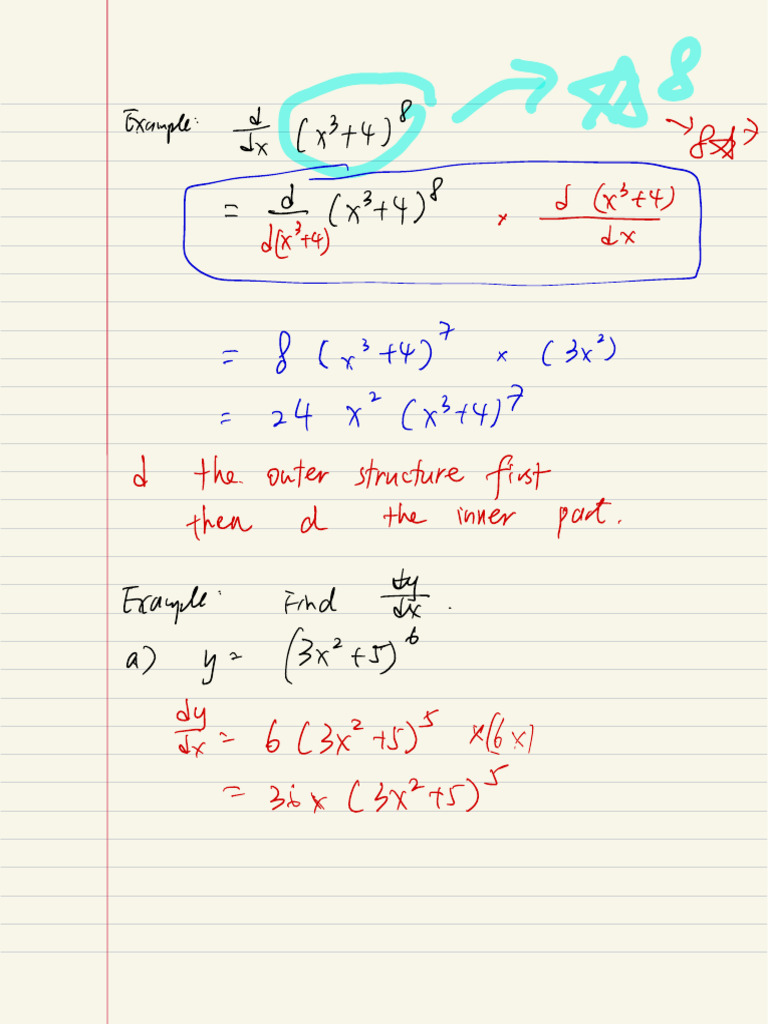 Example: d/dx (x³+4)⁸ → ☆⁸
→ 8☆⁷
= d/d(x³+4) (x³+4)⁸ × d(x³+4)/dx
= 8 (x³+4)⁷ × (3x²)
= 24 x² (x³+4)⁷
d the outer structure first
then d the inner part.
Example: Find dy/dx.
a) y = (3x²+5)⁶
dy/dx = 6(3x²+5)⁵ ×(6x)
= 36x (3x²+5)⁵